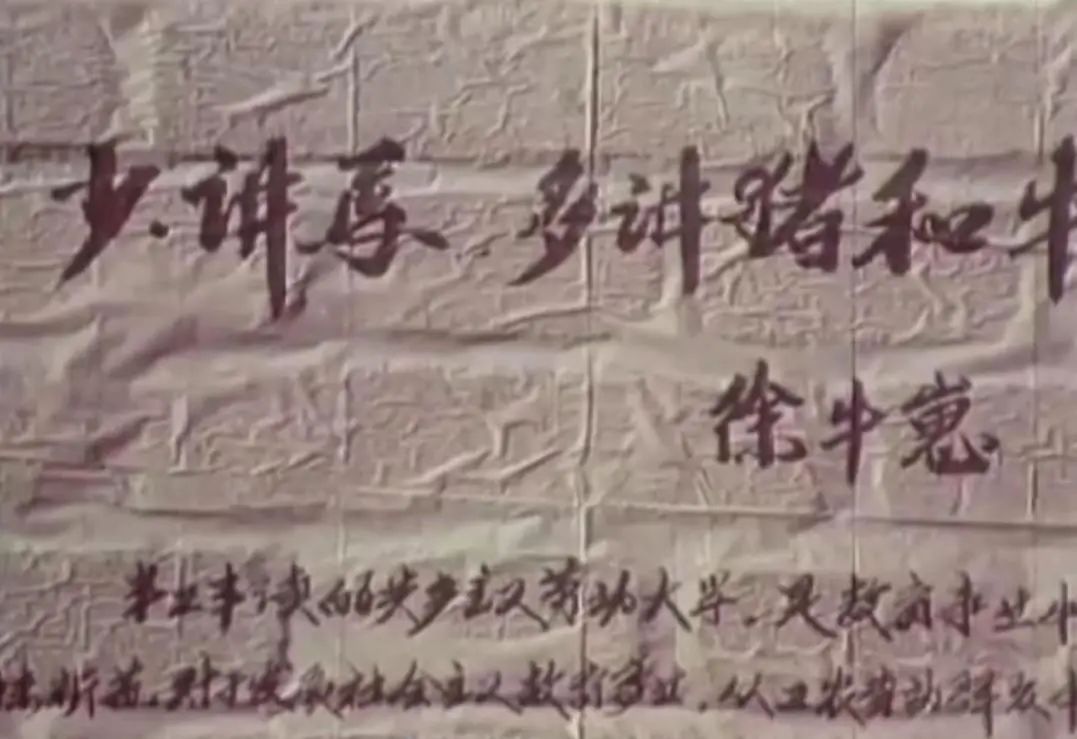 少讲馬 多讲猪和牛
徐牛崽
半工半读的共产主义劳动大学，是教育
对于发展社会主义教育事业，从工农劳动群众